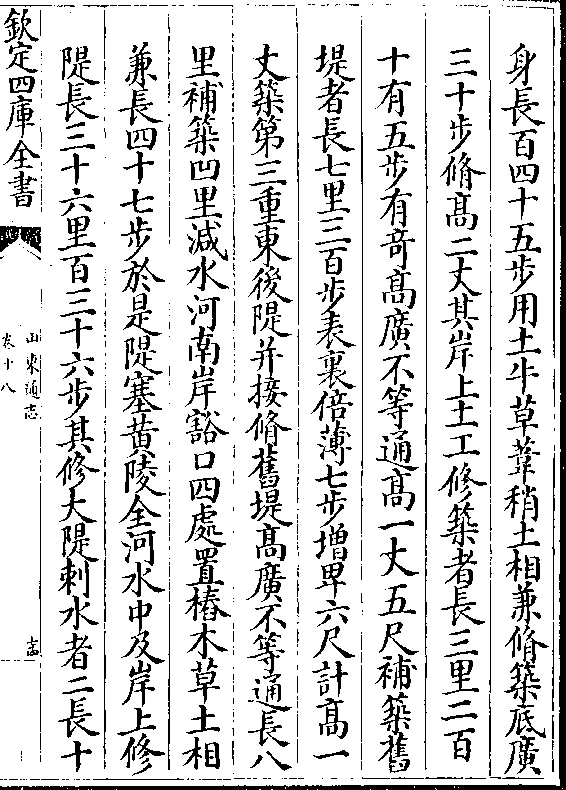 身長百四十五步用土牛草葦稍土相兼脩築底廣
三十步脩髙二丈其岸上土工修築者長三里二百
十有五步有竒髙廣不等通髙一丈五尺補築舊
堤者長七里三百步表裏倍薄七步增卑六尺計髙一
丈築第三重東後隄并接脩舊堤髙廣不等通長八
里補築凹里減水河南岸豁口四處置樁木草土相
兼長四十七步於是隄塞黄陵全河水中及岸上修
隄長三十六里百三十六步其修大隄刺水者二長十
欽定四庫全書
山東通志
卷十八
十四